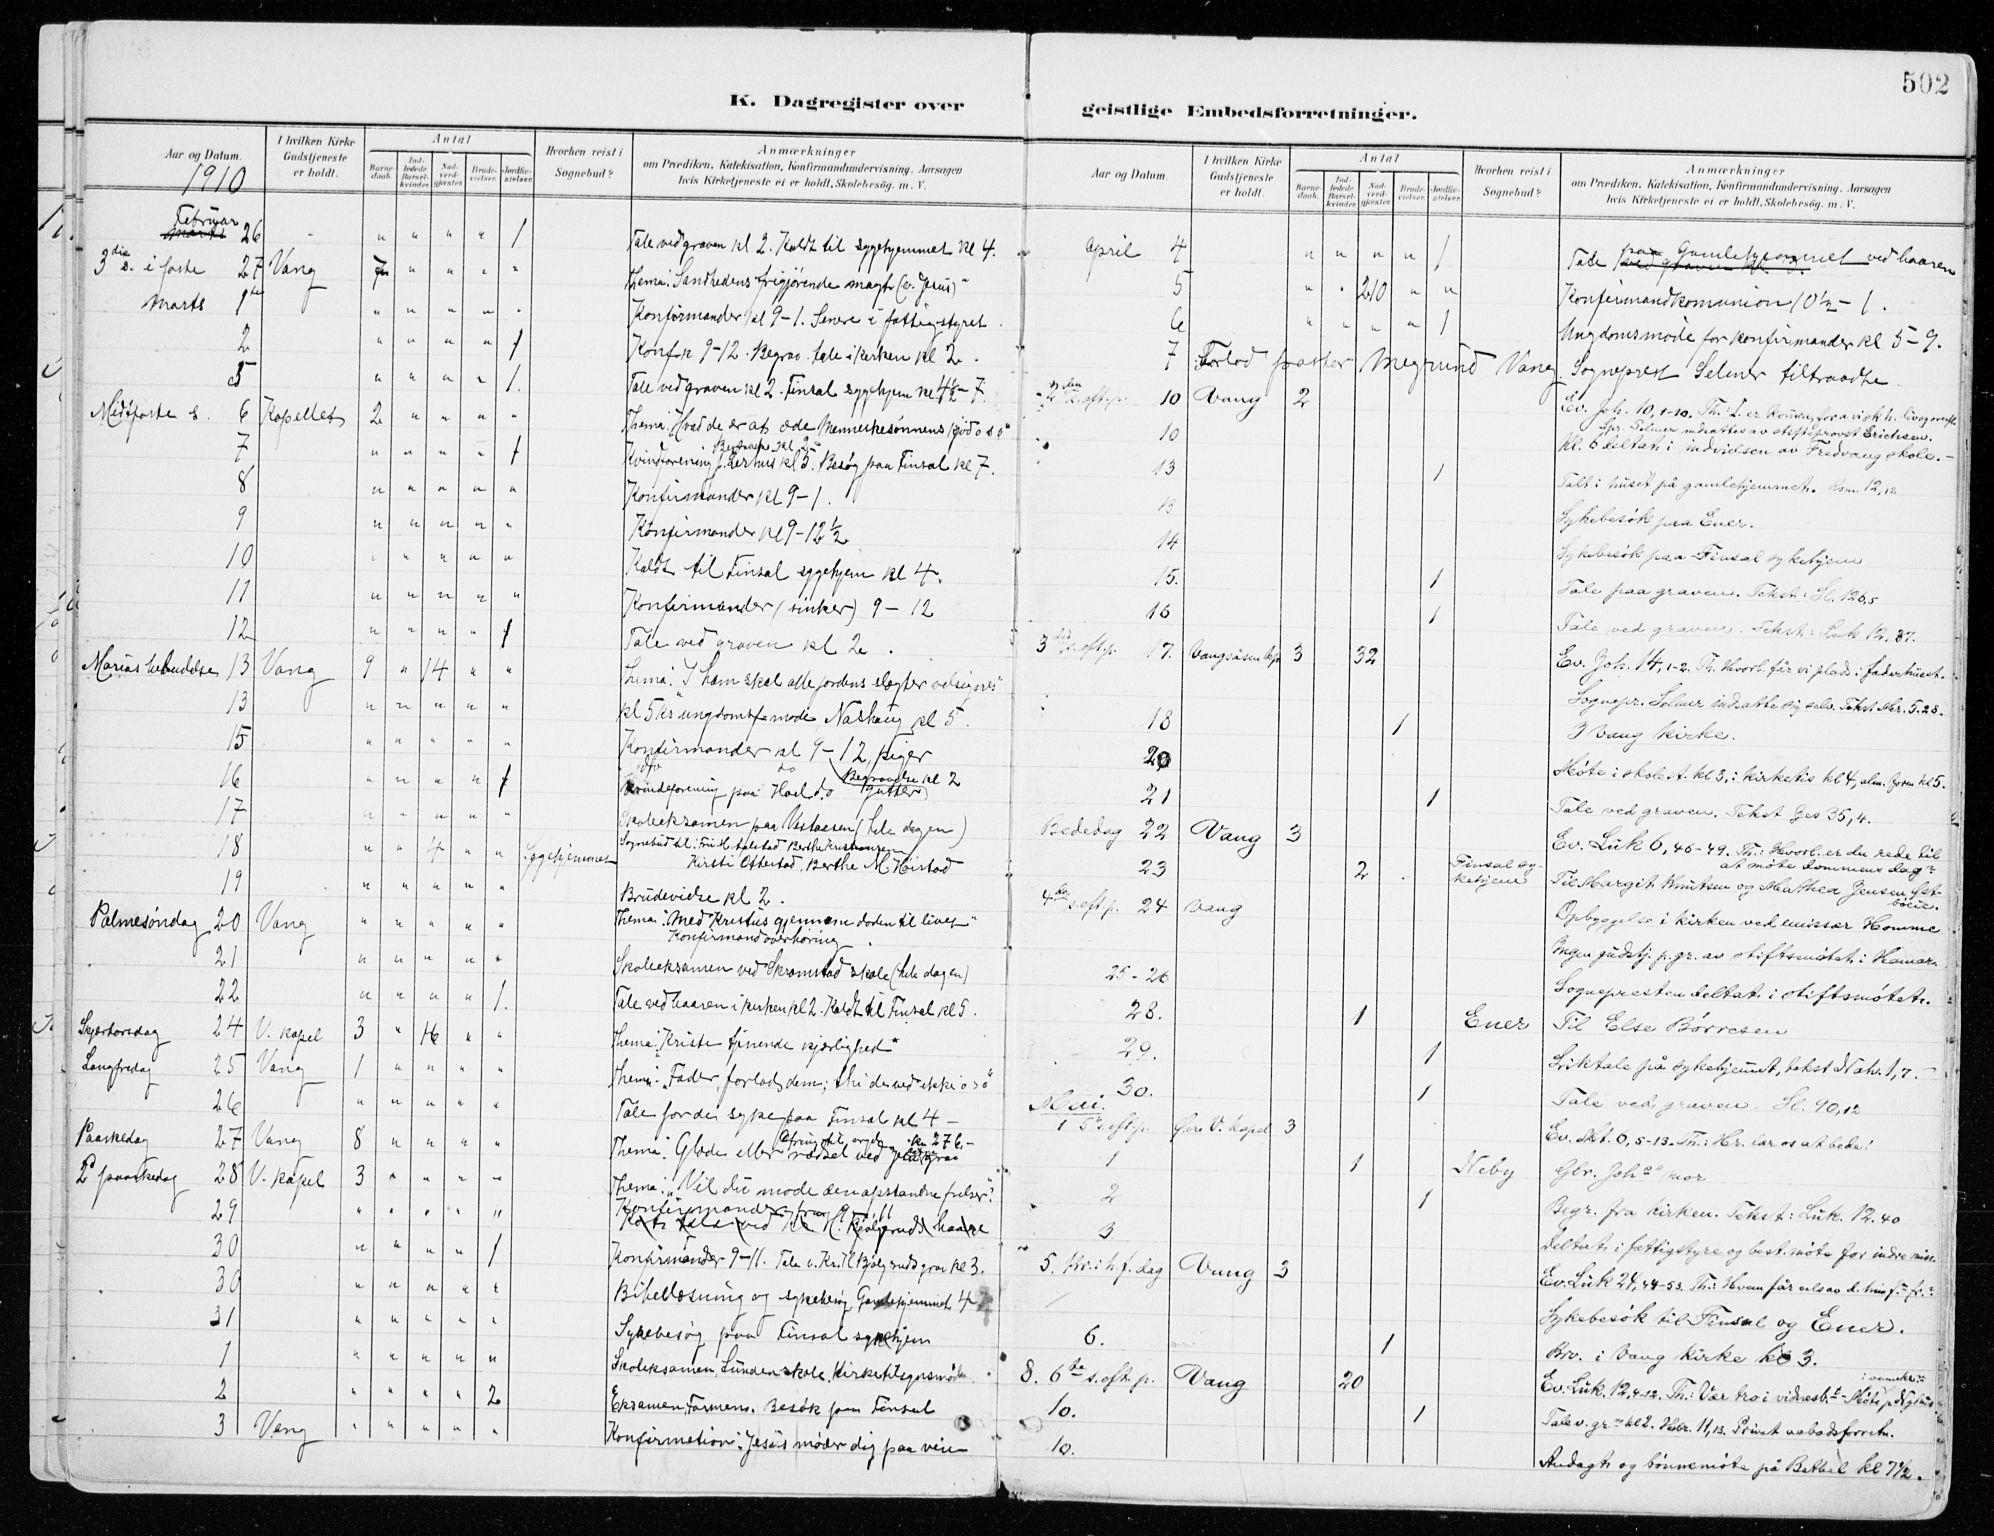 502
K. Dagregister over
geistlige Embedsforretninger.
Aar og Datum.
I hvilken Kirke Gudstjeneste er holdt.
Antal
Barnedaab.
Indledede Barselkvinder.
Nadverdgjester.
Brudevielser.
Jordfæstelser.
Hvorhen reist i Sognebud?
Anmærkninger
om Prædiken, Katekisation, Konfirmandundervisning, Aarsagen
hvis Kirketjeneste ei er holdt, Skolebesøg. m. V.
1910
Februar 26 - " " " " 1 Tale ved graven kl 2. Kaldt til sygehjemmet kl 4.
3die s. i faste 27 Vang " " " " Thema: Sandhedens frigjørende magt (ev. Jesus)"
Marts 1ste " " " " " Konfirmander kl 9-1. Senere i fattigstyret.
2 " " " " 1 Konf. kl 9-12. Begrav. tale i kirken kl 2.
5 " " " " 1. Tale ved graven kl 2. Finsal sygehjem kl 4½-7.
Midfaste s. 6 Kapellet 2 " " " " Thema: Hvad de er at æde Menneskesønnens kjød o s o"
7 " " " " 1 Begravelse kl 2
Kvindforening kl 5. Besøg paa Finsal kl 7.
8 " " " " " Konfirmander kl 9-1.
9 " " " " " Konfirmander kl 9-12½
10 " " " " Kaldt til Finsal sygehjem kl 4.
11 " " " " " Konfirmander (sinker) 9-12
12 " " " " 1 Tale ved graven kl 2.
Marias bebudelse 13 Vang 9 " 14 " " Thema: I ham skal alle jordens slægter velsignes"
13 " " " " kl 5 ungdomsmøde Nashaug kl 5.
15 " " " " " Konfirmander kl 9-12, piger
16 " " " " 1 do do Begravelse kl 2
Kvindeforening paa Hoel do gutter
17 " " " " " Skoleeksamen paa Vestaasen (hele dagen)
18 " " 4 " " Sygehjemmet Sognebud til:
Kirsti Ottestad, Berthe M. Høistad
19 " " " " " Brudevielse kl 2.
Palmesøndag 20 Vang " " " " " Thema: "Med Kristus gjennem døden til livet"
Konfirmandoverhøring.
21 " " " " " Skoleeksamen ved Skramstad skole (hele dagen)
22 " " " " 1. Tale ved baaren i kirken kl 2. Kaldt til Finsal kl 5.
Skjærtorsdag 24 V. kapel 3 " 16 " " Thema: "Kristi tjenende kjærlighed"
Langfredag 25 Vang 1 " " " " Thema: "Fader, forlad dem; thi de ved ikke o s o"
26 " " " " " Tale for de syke paa Finsal kl 4 -
Paaskedag 27 Vang 8 " " " " Ofring til orgel kr 276.-
Thema: Glæde eller rædsel ved Jesu grav
2 paaskedag 28 V. kapel 3 " " " " Thema: "Vil du møde den opstandne frelser"?
29 " " " " " Konfirmander fra 9-11
30 " " " " 1 Konfirmander 9-11. Tale v. grav kl 3.
30 " " " " " Bibellæsning og sykebesøg Gamlehjemmet 4
31 " " " " " Sykebesøg paa Finsal sykehjem
1 " " " " " Skoleeksamen, Lunden skole, Kirketilsynsmøde
2 " " " " 2 Eksamen Farmen. Besøk paa Finsal
3 Vang " " " " " Konfirmation: Jesus møder dig paa veien
Aar og Datum.
I hvilken Kirke Gudstjeneste er holdt.
Antal
Barnedaab.
Indledede Barselkvinder.
Nadverdgjester.
Brudevielser.
Jordfæstelser.
Hvorhen reist i Sognebud?
Anmærkninger
om Prædiken, Katekisation, Konfirmandundervisning, Aarsagen
hvis Kirketjeneste ei er holdt, Skolebesøg. m. V.
April 4 " " " " 1 Tale paa Gamlehjemmet ved baaren
5 " " 210 " " Konfirmandkomunion 10½-1.
6 " " " " 1 Ungdomsmøde for konfirmander kl 5-9.
7 Forlod Vang Sogneprest Selmer tiltraadte
2den s. eft. p. 10 Vang 2 Ev. Joh. 10, 1-10.
Spr. Selmer indsattes av stiftsprovst Erichsen.
10 kl. 6 deltat i indvielsen av Fredvang skole.-
13 1 Talt i huset på gamlehjemmet. Rom. 12, 12
13 Sykebesøk paa Ener.
14 Sykebesøk paa Finsal sykehjem
15. 1 Tale paa graven. Tekst: Sl. 126,5
16 1 Tale ved graven. Tekst: Luk 12, 37.
3die s. eft. p. 17. Vangsåsen kp 3 32 Ev. Joh. 14, 1-2. Th. Hvorl. får vi plads i faderhuset.
Sognepr. Selmer indsatte sig selv. Tekst Mr. 5.28.
18 1 I Vang kirke.
20 Møte i skolest. kl 3, i kirketils kl 4, alm. foren kl 5.
21 1 Tale ved graven. Tekst Jes 35, 4.
Bededag 22 Vang 3 Ev. Luk 6, 46-49. Th.: Hvorl. er du rede til
at møte dommens dag"
23 2 Finsal sykehjem Til Margit Knutsen og Mathea Jensen
4de s. eft. p. 24 Vang Opbyggelse i kirken ved emissær Homme
Ingen gudstj. p. gr. av stiftsmøtet i Hamar.
25-26 Sognepresten deltat i stiftsmøtet.
28. 1 Ener Til Else Børresen
29. 1 Liktale på sykehjemmet, tekst Nah. 1, 7.-
30. 1 Tale ved graven. Sl. 90, 12
Mai.
1 5te s. eft. p. Øvre V. kapel 3 Ev. Mt. 6, 5-13. Th.: Hr. lær os at bede!
1 1 Neby Gbr. mor
2 1 Begr. fra kirken. Tekst: Luk. 12.40
3 Deltat i fattigstyre og best. møte for indre miss.
5. Kr. i h. f. dag Vang 3 Ev. Luk 24, 44-53. Th.: Hvem får
Sykebesøk til Finsal og Ener.
6. 1 Brv. i Vang kirke kl 3.
8. 6te s. eft. p. Vang 20 Ev. Luk. 12, 4-12. Th.: Vær tro i vidnesb.
10. 1 Tale v. gr. kl 2. Hebr. 11, 13. Privat
10. Andagt og bønnemøte på Betbel kl 7½.